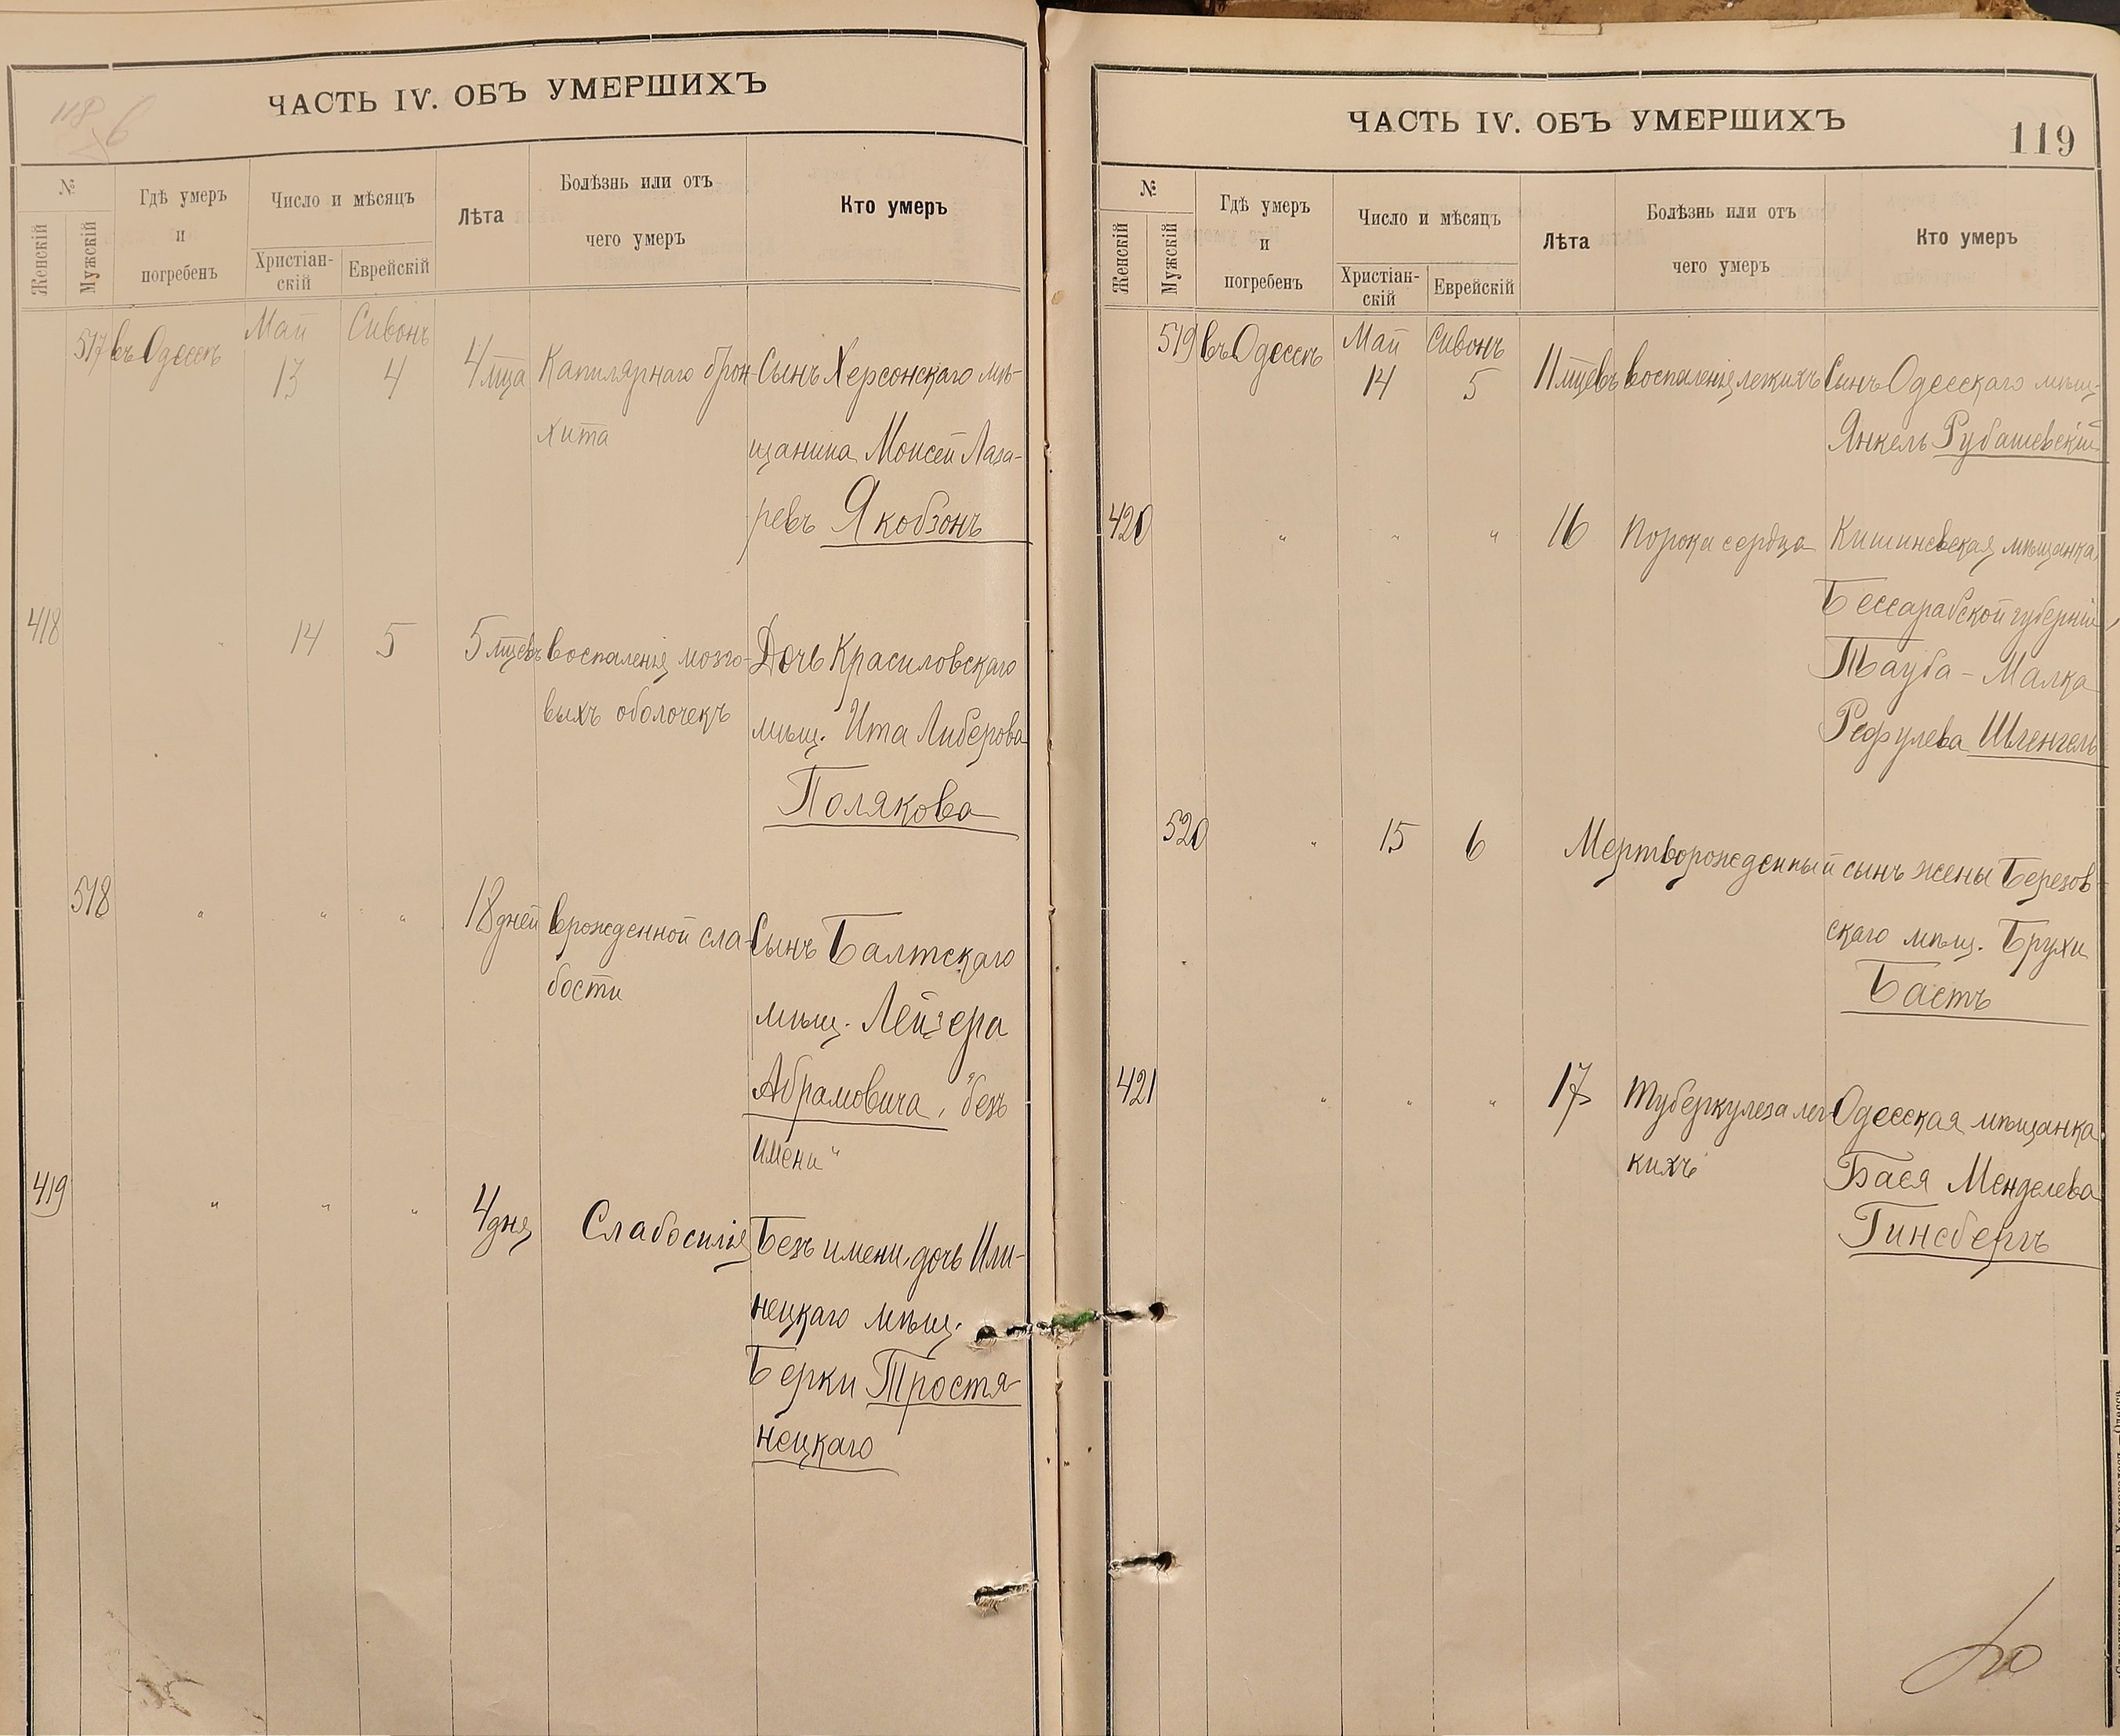 ЧАСТЬ IV. ОБЪ УМЕРШИХЪ
118
№
Женскій
Мужскій
Гдѣ умеръ
и
погребенъ
Число и мѣсяцъ
Христіан-
скій
Еврейскій
Лѣта
Болѣзнь или отъ
чего умеръ
Кто умеръ
517 въ Одессѣ Май 13 Сивонъ 4 4 мца Капилярнаго брон- Сынъ Херсонскаго мѣ-
хита щанина Моисей Лаза-
ревъ Якобзонъ
418 " 14 5 5 мцевъ воспаленія мозго- Дочь Красиловскаго
выхъ оболочекъ мѣщ. Ита Либерова
Полякова
518 " " " 18 дней врожденной сла- Сынъ Балтскаго
бости мѣщ. Лейзера
Абрамовича, "безъ
имени"
419 " " " 4 дня Слабосилія Безъ имени, дочь Или-
нецкаго мѣщ.
Берки Тростя-
нецкаго
ЧАСТЬ IV. ОБЪ УМЕРШИХЪ
119
№
Женскій
Мужскій
Гдѣ умеръ
и
погребенъ
Число и мѣсяцъ
Христіан-
скій
Еврейскій
Лѣта
Болѣзнь или отъ
чего умеръ
Кто умеръ
519 въ Одессѣ Май 14 Сивонъ 5 11 мцевъ воспаленія легкихъ Сынъ Одесскаго мѣщ.
Янкель Рубашевскій
420 " " " 16 Порока сердца Кишиневская мѣщанка,
Бессарабской губерніи,
Тауба-Малка
Рефулева Шленгель
520 " 15 6 Мертворожденный сынъ жены Березов-
скаго мѣщ. Брухи
Бастъ
421 " " " 17 Туберкулеза лег- Одесская мѣщанка
кихъ Бася Менделева
Гинсбергъ